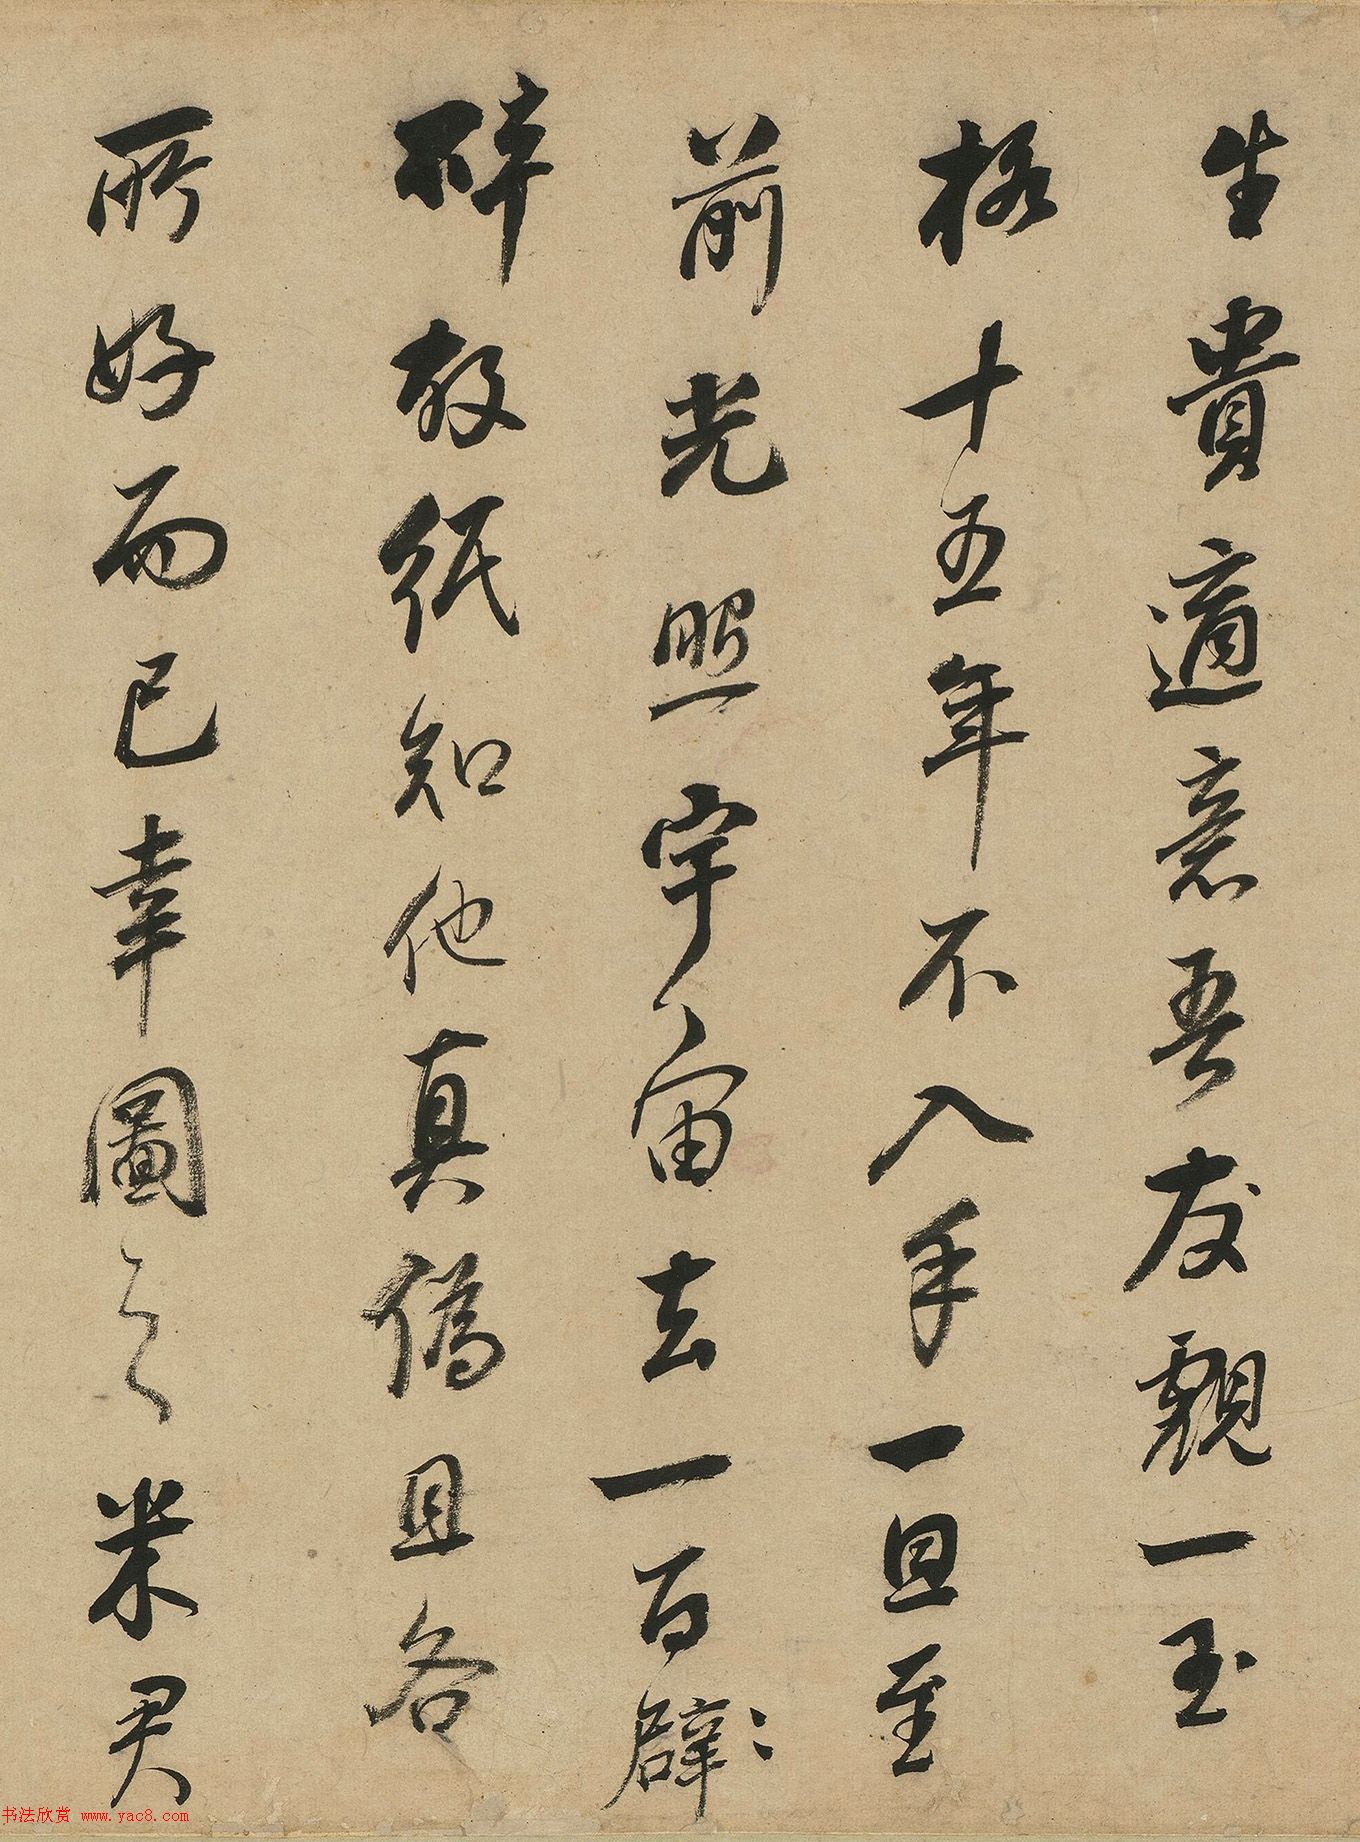 生貴適意吾友覩一玉
格十五年不入手一旦至
前光照宇宙去一百碎
故紙知他真偽且各
所好而已幸圖之米君
书法欣赏 www.yac8.com